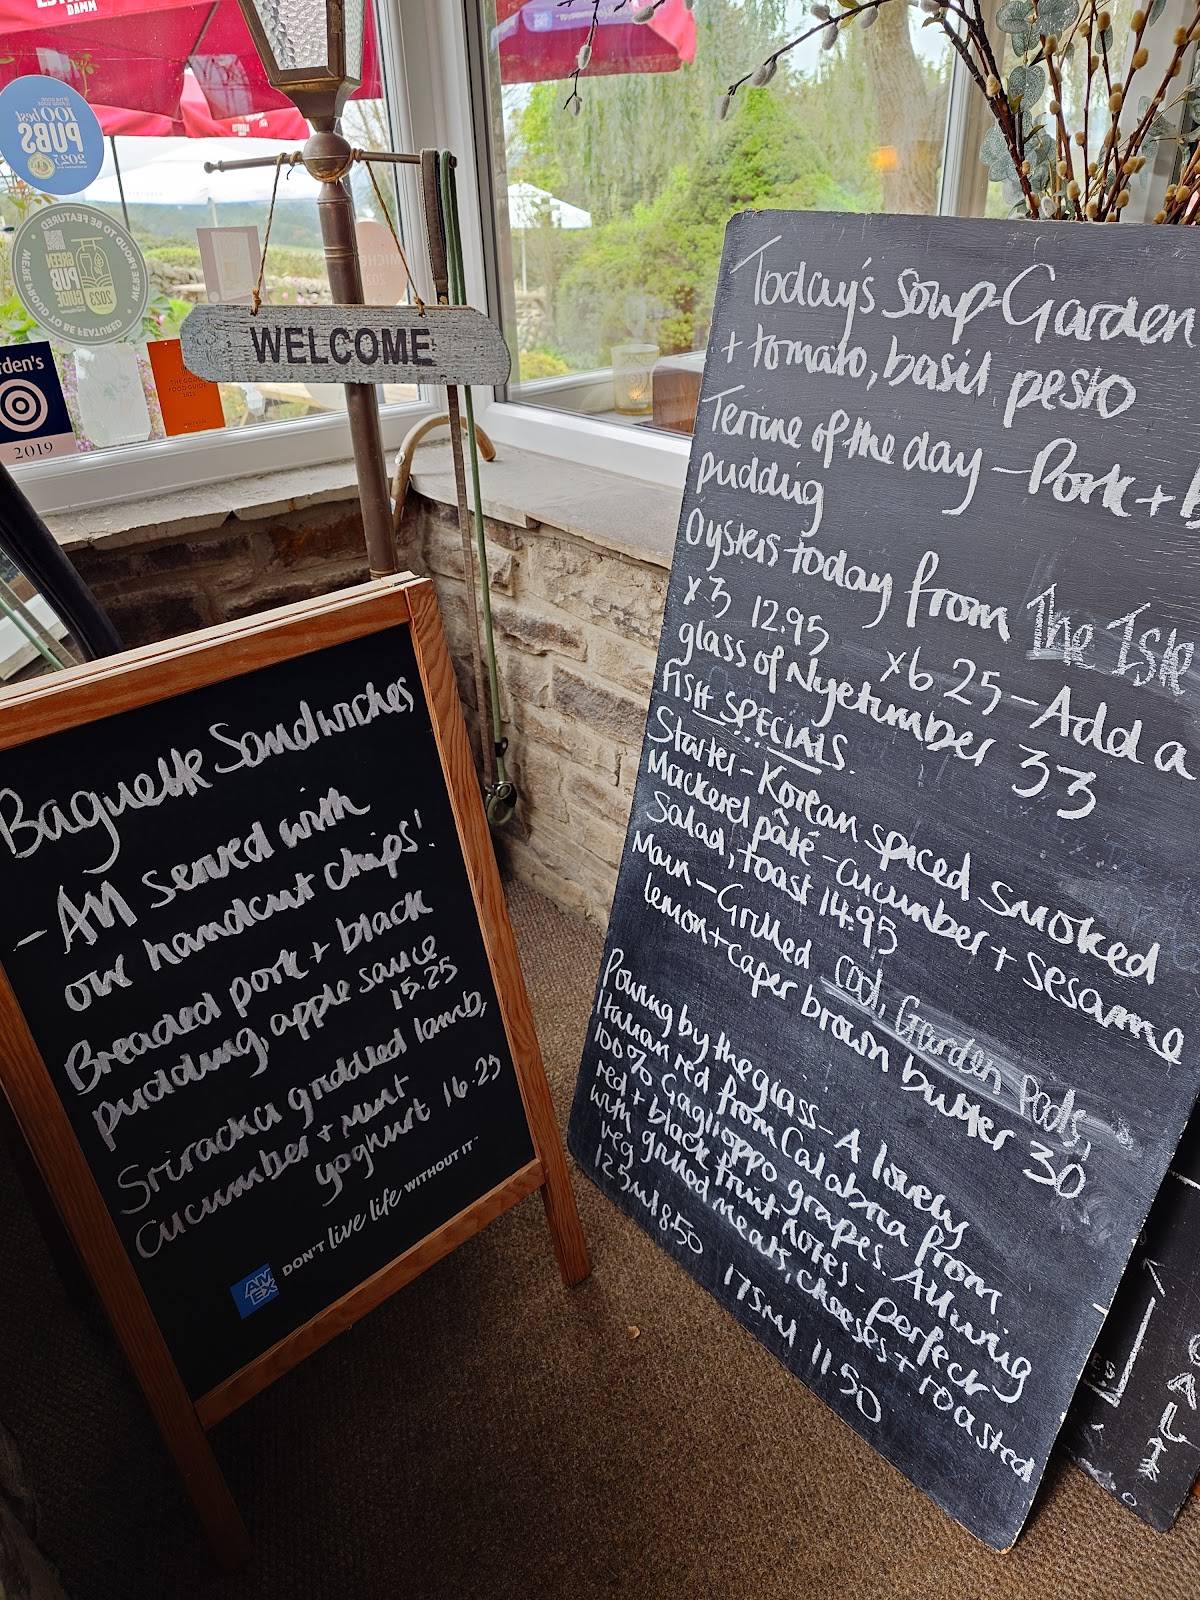 DAMM
100 best
PUBS
2025
WE'RE PROUD TO BE FEATURED
GREEN
PUB
GUIDE
2023
WE'RE PROUD TO BE FEATURED
rden's
2019
THE GOOD
FOOD GUIDE
MICHE
WELCOME
Baguette Sandwiches
- All served with
our handcut chips!
Breaded pork + black
pudding, apple sauce
15.25
Sriracha griddled lamb,
cucumber + mint
yoghurt 16.25
AM
EX
DON'T live life WITHOUT IT
Today's Soup - Garden
+ tomato, basil pesto
Terrine of the day - Pork + b
pudding
Oysters today from The Isle
x3 12.95 x6 25 - Add a
glass of Nyetimber 33
FISH SPECIALS.
Starter - Korean spiced smoked
Mackerel pâté - cucumber + sesame
Salad, toast 14.95
Main - Grilled cod, Garden Pods,
lemon + caper brown butter 30
Pouring by the glass - A lovely
Italian red from Calabria from
100% Gaglioppo grapes. Alluring
red + black fruit notes - perfect
with grilled meats, cheeses + roasted
veg
125ml 8.50
175ml 11.50